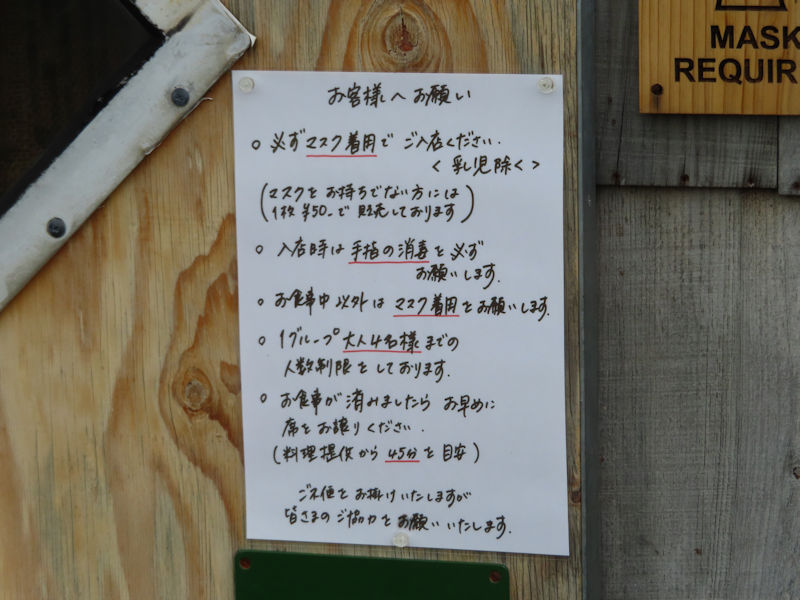 お客様へお願い
○ 必ずマスク着用でご入店ください.
<乳児除く>
(マスクをお持ちでない方には
1枚¥50-で販売しております)
○ 入店時は手指の消毒を必ず
お願いします.
○ お食事中以外はマスク着用をお願いします.
○ 1グループ大人4名様までの
人数制限をしております.
○ お食事が済みましたらお早めに
席をお譲りください.
(料理提供から45分を目安)
ご不便をお掛けいたしますが
皆さまのご協力をお願いいたします.
MASK
REQUIR